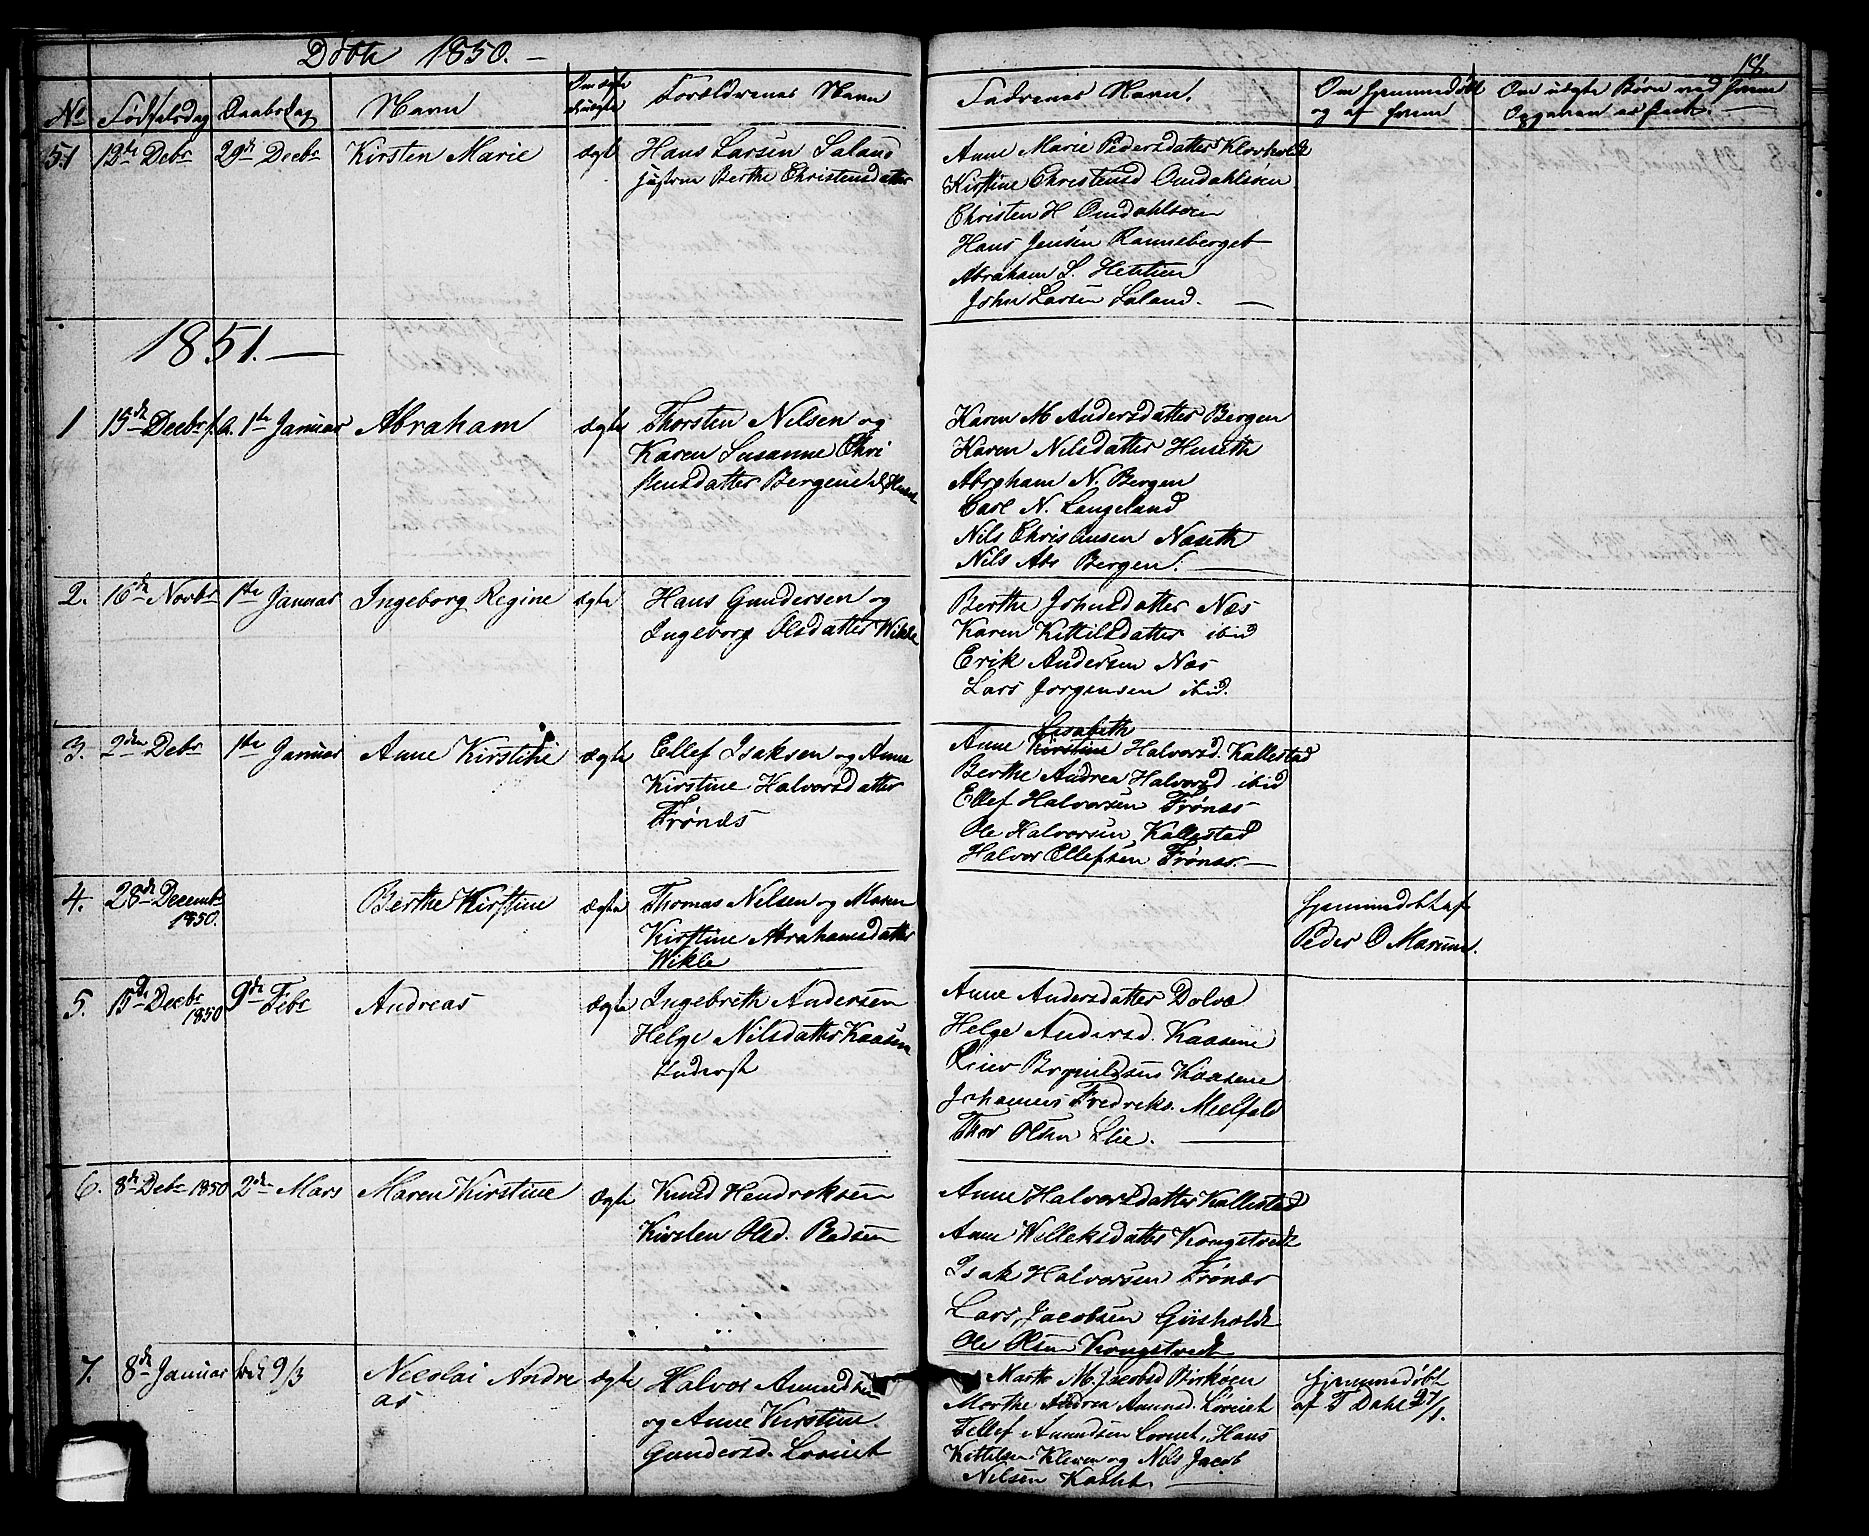 Døbte 1850. —
18.
No Fødselsdag Daabsdag Navn Om ægte Uægte Forældrenes Navn Fadrenes Navn. Om Hjemmedøbt og af hvem Om uægte Børn ved hvem
51 13de Debr 29de Decbr Kirsten Marie ægte Hans Larsen Saland
Hustru Berthe Christensdatter
Anne Marie Pedersdatter Klovholt
Kirstine Christensd Omdahlsøen
Christen H Omdahlsøen
Hans Jensen Ranneberget
Abraham S.
John Larsen Saland. —
1851. —
1 15de Decbr f.A. 1te Januar Abraham ægte Thorsten Nilsen og
Karen Susanne Chri
stensdatter Bergene
Karen M Andersdatter Bergen
Karen Nilsdatter Huseth
Abraham N. Bergen
Carl N. Langeland
Nils Christensen Naseth
Nils Abr Bergen. —
2. 16de Novbr 1te Januar Ingeborg Regine ægte Hans Gundersen og
Ingeborg Olsdatter Wikle
Berthe Johnsdatter Næs
Karen Kittilsdatter ibid
Erik Andersen Næs
Lars Jørgensen ibid.
3. 2den Debr 1te Januar Anne Kirstine ægte Ellef Isaksen og Anne
Kirstine Halvorsdatter
Frønæs
Lisabeth
Anne Kirstine Halvorsd. Kallestad
Berthe Andrea Halvorsd ibid
Ellef Halvorsen Frønæs
Ole Halvorsen Kallestad
Halvor Ellefsen Frønæs. —
4. 28de Decemb 1850. Berthe Kirstine ægte Thomas Nilsen og Maren
Kirstine Abrahamsdatter
Wikle
Hjemmedøbt af
Peder O Marum.
5. 15de Decbr 1850 9de Febr Andreas ægte Ingebreth Andersen
Helge Nilsdatter Kaasene
Anne Andersdatter Dolva
Helge Andersd. Kaasene
Reier Brynildsen Kaasene
Johannes Fredriks.
Thor Olsen Lie. —
6. 8de Debr 1850 2den Mars Maren Kirstine ægte Knud Hendriksen
Kirsten Olsd.
Anne Halvorsdatter Kallestad
Anne Willeksdatter Kongstvedt
Isak Halvorsen Frønæs
Lars Jacobsen Giisholdt
Ole Olsen Kongstvedt
7. 8de Januar 9/3 Nicolai Andre
as ægte Halvor Amundsen
og Anne Kirstine
Gundersd. Loviet
Marthe M. Jacobsd Birkøen
Marthe Andrea Amunds. Loviet
Tellef Amundsen Loviet, Hans
Kittilsen Kleven og Nils Jacob
Nilsen
Hjemmedøbt
af T Dahl 27/1.